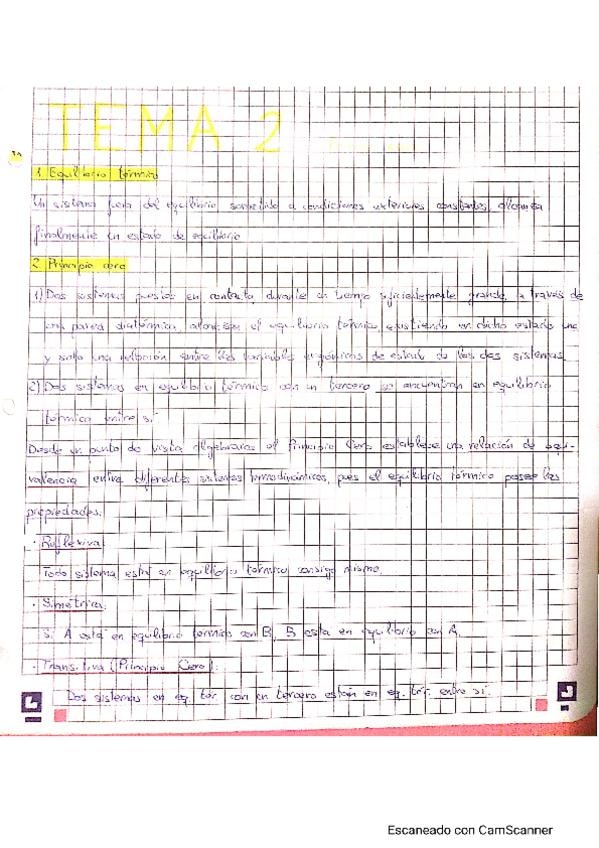 TEMA 2
1. Equilibrio térmico
Un sistema fuera del equilibrio sometido a condiciones exteriores constantes, alcanza
finalmente un estado de equilibrio
2. Principio cero
1) Dos sistemas puestos en contacto, durante un tiempo suficientemente grande, a través de
una pared diatérmica, alcanzan el equilibrio térmico, existiendo en dicho estado una
y solo una relación entre las variables de estado de los dos sistemas
2) Dos sistemas en equilibrio térmico con un tercero se encuentran en equilibrio
térmico entre sí.
Desde un punto de vista algebraico el Principio Cero establece una relación de equi-
valencia entre diferentes sistemas termodinámicos, pues el equilibrio térmico posee las
propiedades:
· Reflexiva:
Todo sistema está en equilibrio térmico consigo mismo.
· Simétrica:
Si A está en equilibrio térmico con B, B está en equilibrio con A.
· Transitiva (Principio Cero):
Dos sistemas en eq. tér. con un tercero están en eq. tér. entre sí.
Escaneado con CamScanner